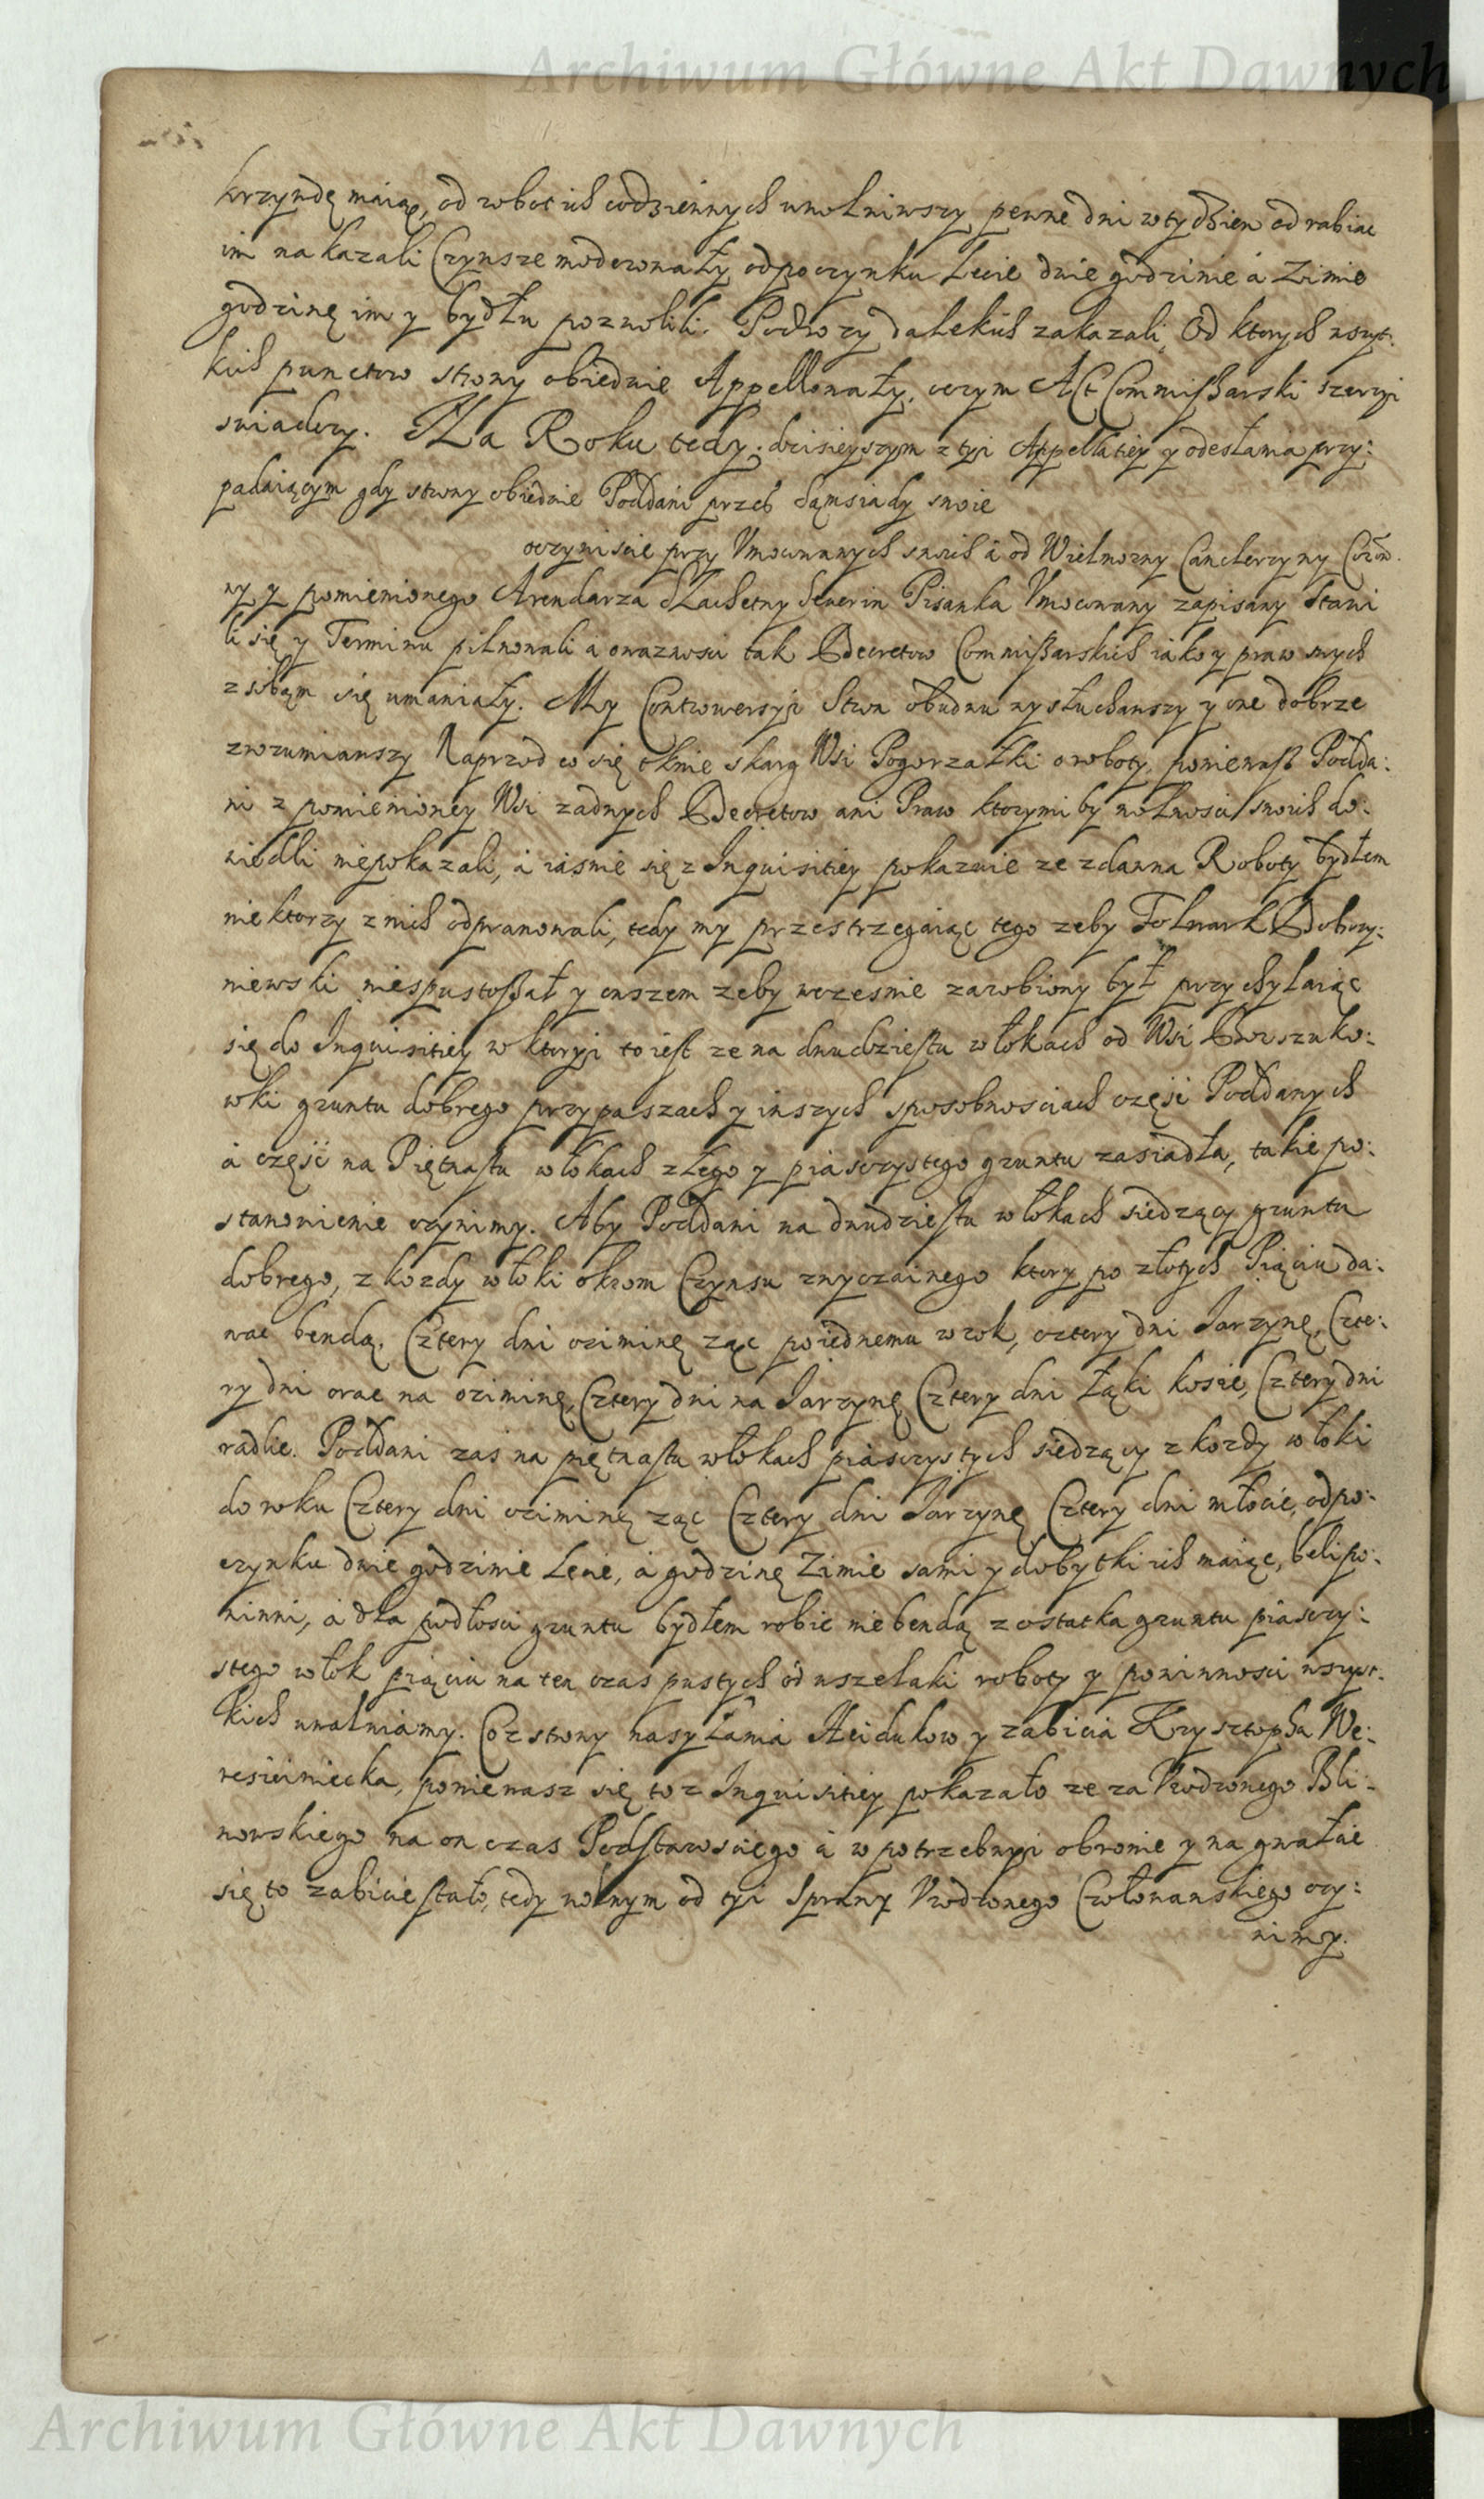 Archiwum Główne Akt Dawnych
krzywdę maiąc, od robot ich codziennych uwolniwszy pewne dni w tydzien odrabiac
im nakazali Czynsze moderowały odpoczynku Lecie dwie godzinie á Zimie
godzinę im y bydłu pozwolili. Podwozy dalekich zakazali, Od ktorych wszyt:
kich punctow strony obiedwie Appellowały, oczym Act Commissarski szerzyi
swiadczy. Na Roku tedy dzisieyszym z tyi Appellatiey y odesłania przy:
padaiącym gdy strony obiedwie Poddani przed Sąm siady swoie
oczywiscie przy Umocowanych swoich á od Wielmozny Canclerzyny Coron:
ny y pomienionego Arendarza Szlachetny Sewerin Pisanka Umocowany zapisany Stawi
li się y Terminu pilnowali a o waznosci tak Decretow Commissarskich iako y praw swych
z sobąm się umawiały. My Controwersyi Stron obudwu wysłuchawszy y one dobrze
zrozumiawszy Naprzod co się tknie skarg Wsi Pogorzałki o roboty, poniewasz Podda:
ni z pomienioney Wsi zadnych Decretow ani Praw ktorymi by wolnosci swoich do:
wiedli niepokazali, á iasnie się z Inquisitiey pokazuie ze zdawna Roboty bydłem
niektorzy z nich odprawowali, tedy my przestrzegaiąc tego zeby Folwark Dobrzy:
niewski niespustoszał y owszem zeby wczesnie zarobiony był przychylaiąc
się do Inquisitiey w ktoryi to iest ze na dwudziestu włokach od Wsi Borszuko:
wki gruntu dobrego przy paszach y inszych sposobnosciach część Poddanych
á część na Piętnastu włokach złego y piasczystego gruntu zasiadła, takie po:
stanowienie czynimy. Aby Poddani na dwudziestu włokach siedzący gruntu
dobrego, z kozdy włoki okrom Czynsu zwyczainego ktory po złotych Piąciu da:
wac bendą. Cztery dni oziminę ząc poiednemu w rok, cztery dni Jarzynę, Czte:
ry dni orac na oziminę, Cztery dni na Jarzynę Cztery dni Łąki kosic, Cztery dni
radlic. Poddani zas na piętnastu włokach piasczystych siedzący z kozdy włoki
do roku Cztery dni oziminę ząc Cztery dni Jarzynę Cztery dni młocic, odpo:
czynku dwie godzinie Lecie, á godzinę Zimie sami y dobytki ich maiąc, beli po:
winni, á dla podłosci gruntu bydłem robic niebendą z ostatka gruntu piasczy:
stego włok piąciu na ten czas pustych od wszelaki roboty y powinnosci wszyt:
kich uwalniamy. Co z strony nasyłania Heidukow y zabicia Krzysztopha We:
resiciniecka, poniewasz się to z Inquisitiey pokazało ze za Urodzonego Bli:
nowskiego na on czas Podstarosciego á w potrzebnyi obronie y na gwałcie
się to zabicie stało, tedy wolnym od tyi Sprawy Urodzonego Czołowanskiego czy:
nimy.
Archiwum Główne Akt Dawnych